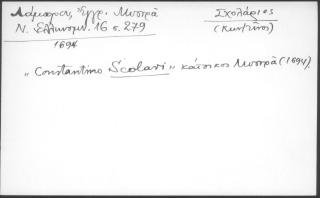 Λάμπρου, Ἔγγρ. Μυστρᾶ
Ν. Ἑλληνομν. 16 σ. 279
1694
Σχολάριος
(Κων/τῖνος)
"Constantino Scolari" κάτοικος Μυστρᾶ (1694).